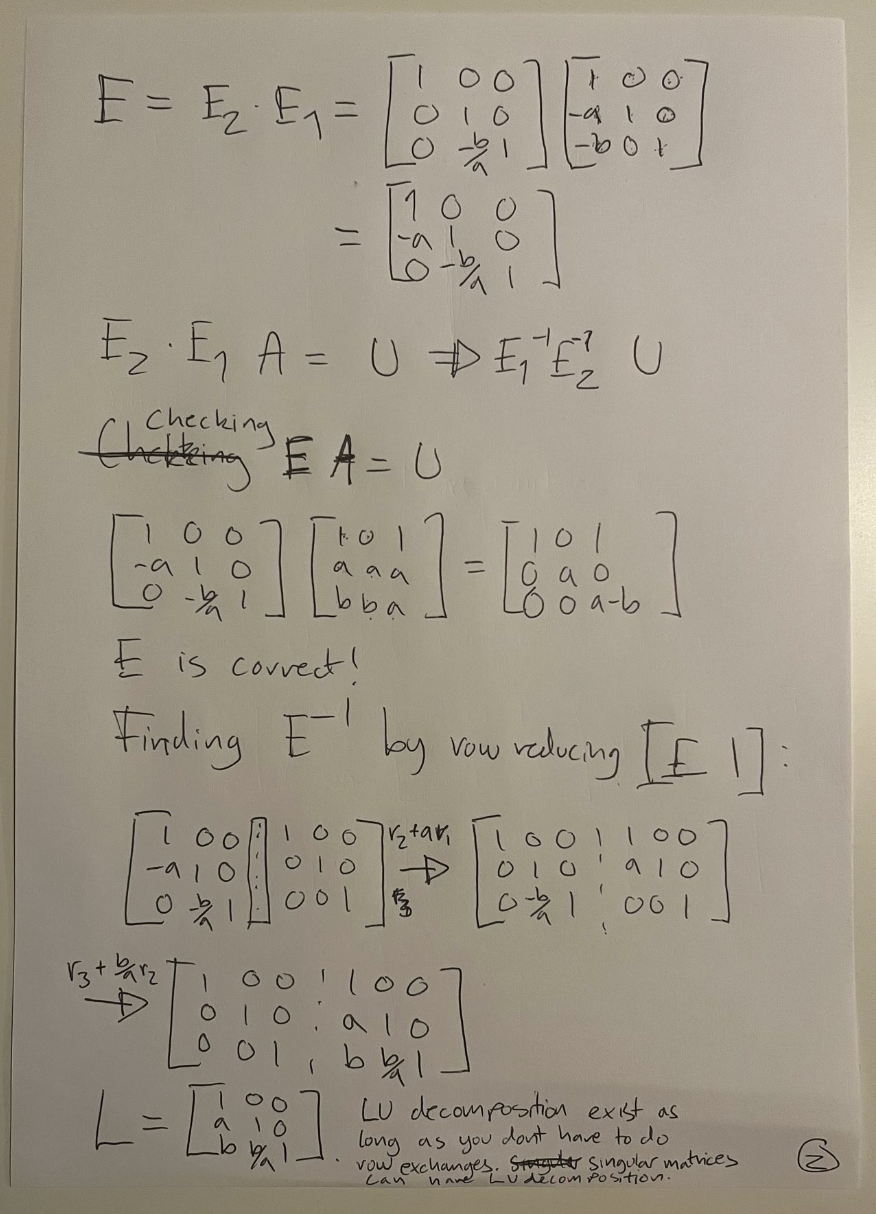 E = E₂ · E₁ = [1 0 0; 0 1 0; 0 -b/a 1] [1 0 0; -a 1 0; -b 0 1]
= [1 0 0; -a 1 0; 0 -b/a 1]
E₂ · E₁ A = U ⇒ E₁⁻¹ E₂⁻¹ U
Checking E A = U
[1 0 0; -a 1 0; 0 -b/a 1] [1 0 1; a a a; b b a] = [1 0 1; 0 a 0; 0 0 a-b]
E is correct!
Finding E⁻¹ by row reducing [E I]:
[1 0 0 | 1 0 0; -a 1 0 | 0 1 0; 0 -b/a 1 | 0 0 1] r₂+ar₁ ⇒ [1 0 0 | 1 0 0; 0 1 0 | a 1 0; 0 -b/a 1 | 0 0 1]
r₃ + b/a r₂ ⇒ [1 0 0 | 1 0 0; 0 1 0 | a 1 0; 0 0 1 | b b/a 1]
L = [1 0 0; a 1 0; b b/a 1]
LU decomposition exist as
long as you dont have to do
row exchanges. singular matrices
can have LU decomposition.
2